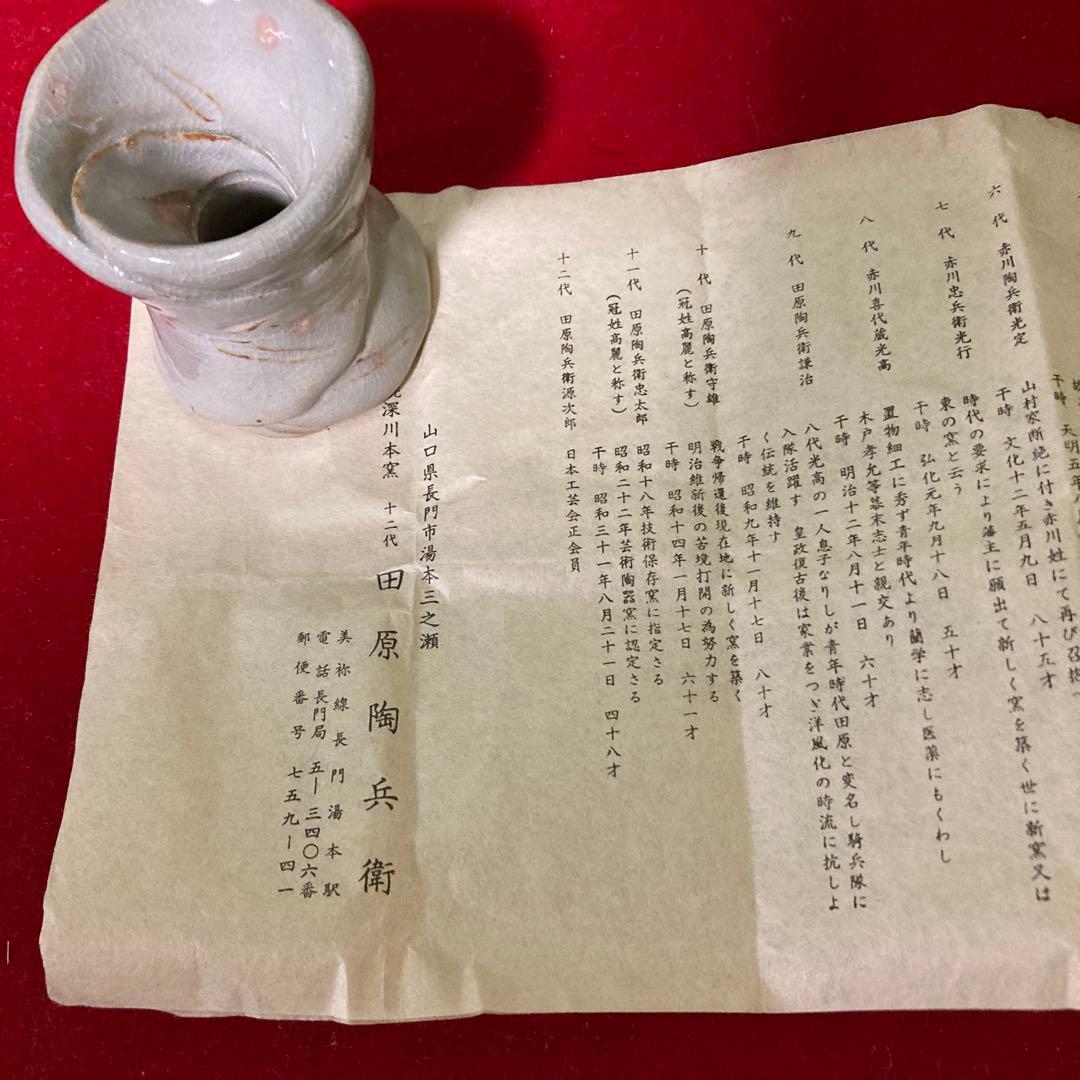 干時 天明五年
山村家断絶に付き赤川姓にて再び召抱
六代 赤川陶兵衛光定
干時 文化十二年五月九日 八十五才
時代の要求により藩主に願出て新しく窯を築く世に新窯又は
東の窯と云う
七代 赤川忠兵衛光行
干時 弘化元年九月十八日 五十才
置物細工に秀ず青年時代より蘭学に志し医薬にもくわし
木戸孝允等幕末志士と親交あり
八代 赤川喜代蔵光高
干時 明治十二年八月十一日 六十才
八代光高の一人息子なりしが青年時代田原と変名し騎兵隊に
入隊活躍す 皇政復古後は家業をつぎ洋風化の時流に抗しよ
く伝統を維持す
九代 田原陶兵衛謙治
干時 昭和九年十一月十七日 八十才
戦争帰還後現在地に新しく窯を築く
明治維新後の苦境打開の為努力する
十代 田原陶兵衛守雄
(冠姓高麗と称す)
干時 昭和十四年一月十七日 六十一才
昭和十八年技術保存窯に指定さる
昭和二十二年芸術陶器窯に認定さる
十一代 田原陶兵衛忠太郎
(冠姓高麗と称す)
干時 昭和三十一年八月二十一日 四十八才
十二代 田原陶兵衛源次郎 日本工芸会正会員
山口県長門市湯本三之瀬
深川本窯 十二代 田原陶兵衛
美祢線長門湯本駅
電話長門局 五―三四〇六番
郵便番号 七五九―四一